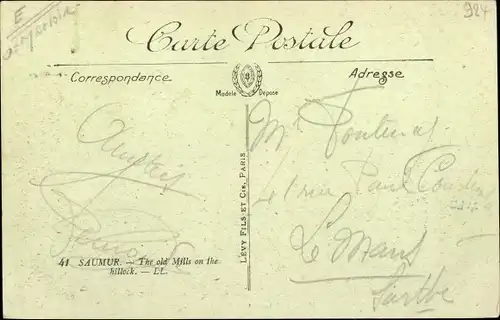 E
924
Carte Postale
Correspondance
Adresse
Modèle Déposé
LÉVY FILS ET Cie, PARIS
Mr
41 rue Paul
Le Mans
Sarthe
41 SAUMUR. — The old Mills on the
hillock. — LL.